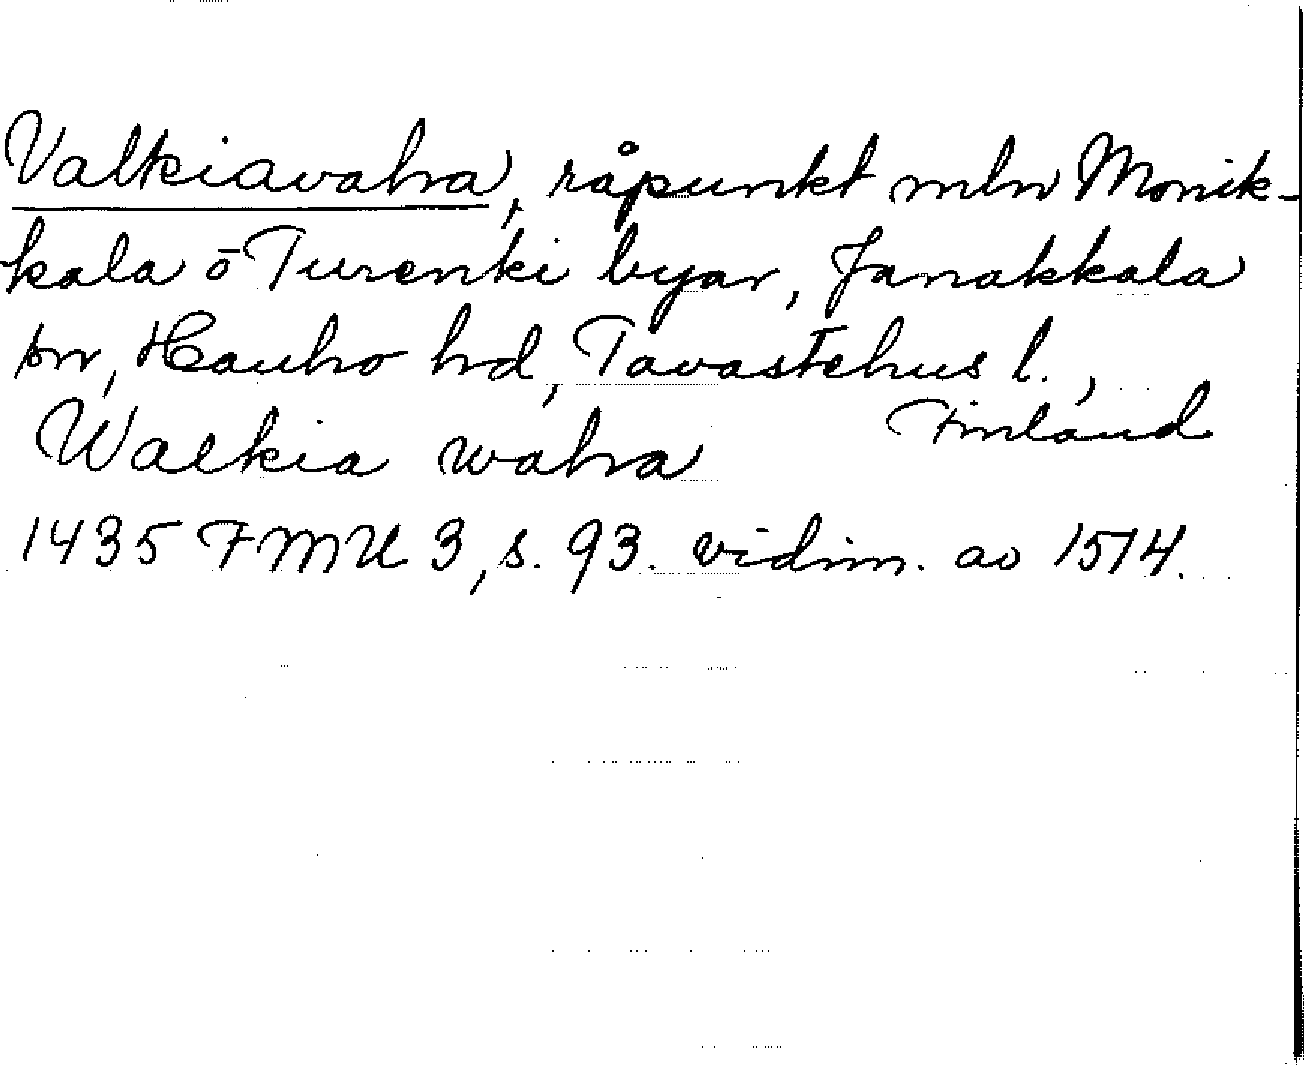 Valkiavaha, råpunkt mln Monik-
kala ō Turenki byar, Janakkala
sn, Hauho hd, Tavastehus l.,
Finland
Walkia waha
1435 FMU 3, s. 93. vidim. av 1514.